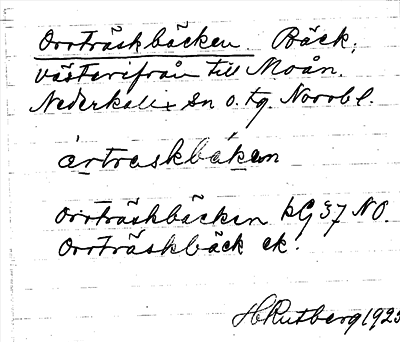 Orrträskbäcken. Bäck,
västerifrån till Moån.
Nederkalix sn o. tg. Norrb l.
årtraskbäken
Orrträskbäcken kG 37 NO.
Orrträskbäck ek.
H Rutberg 1925